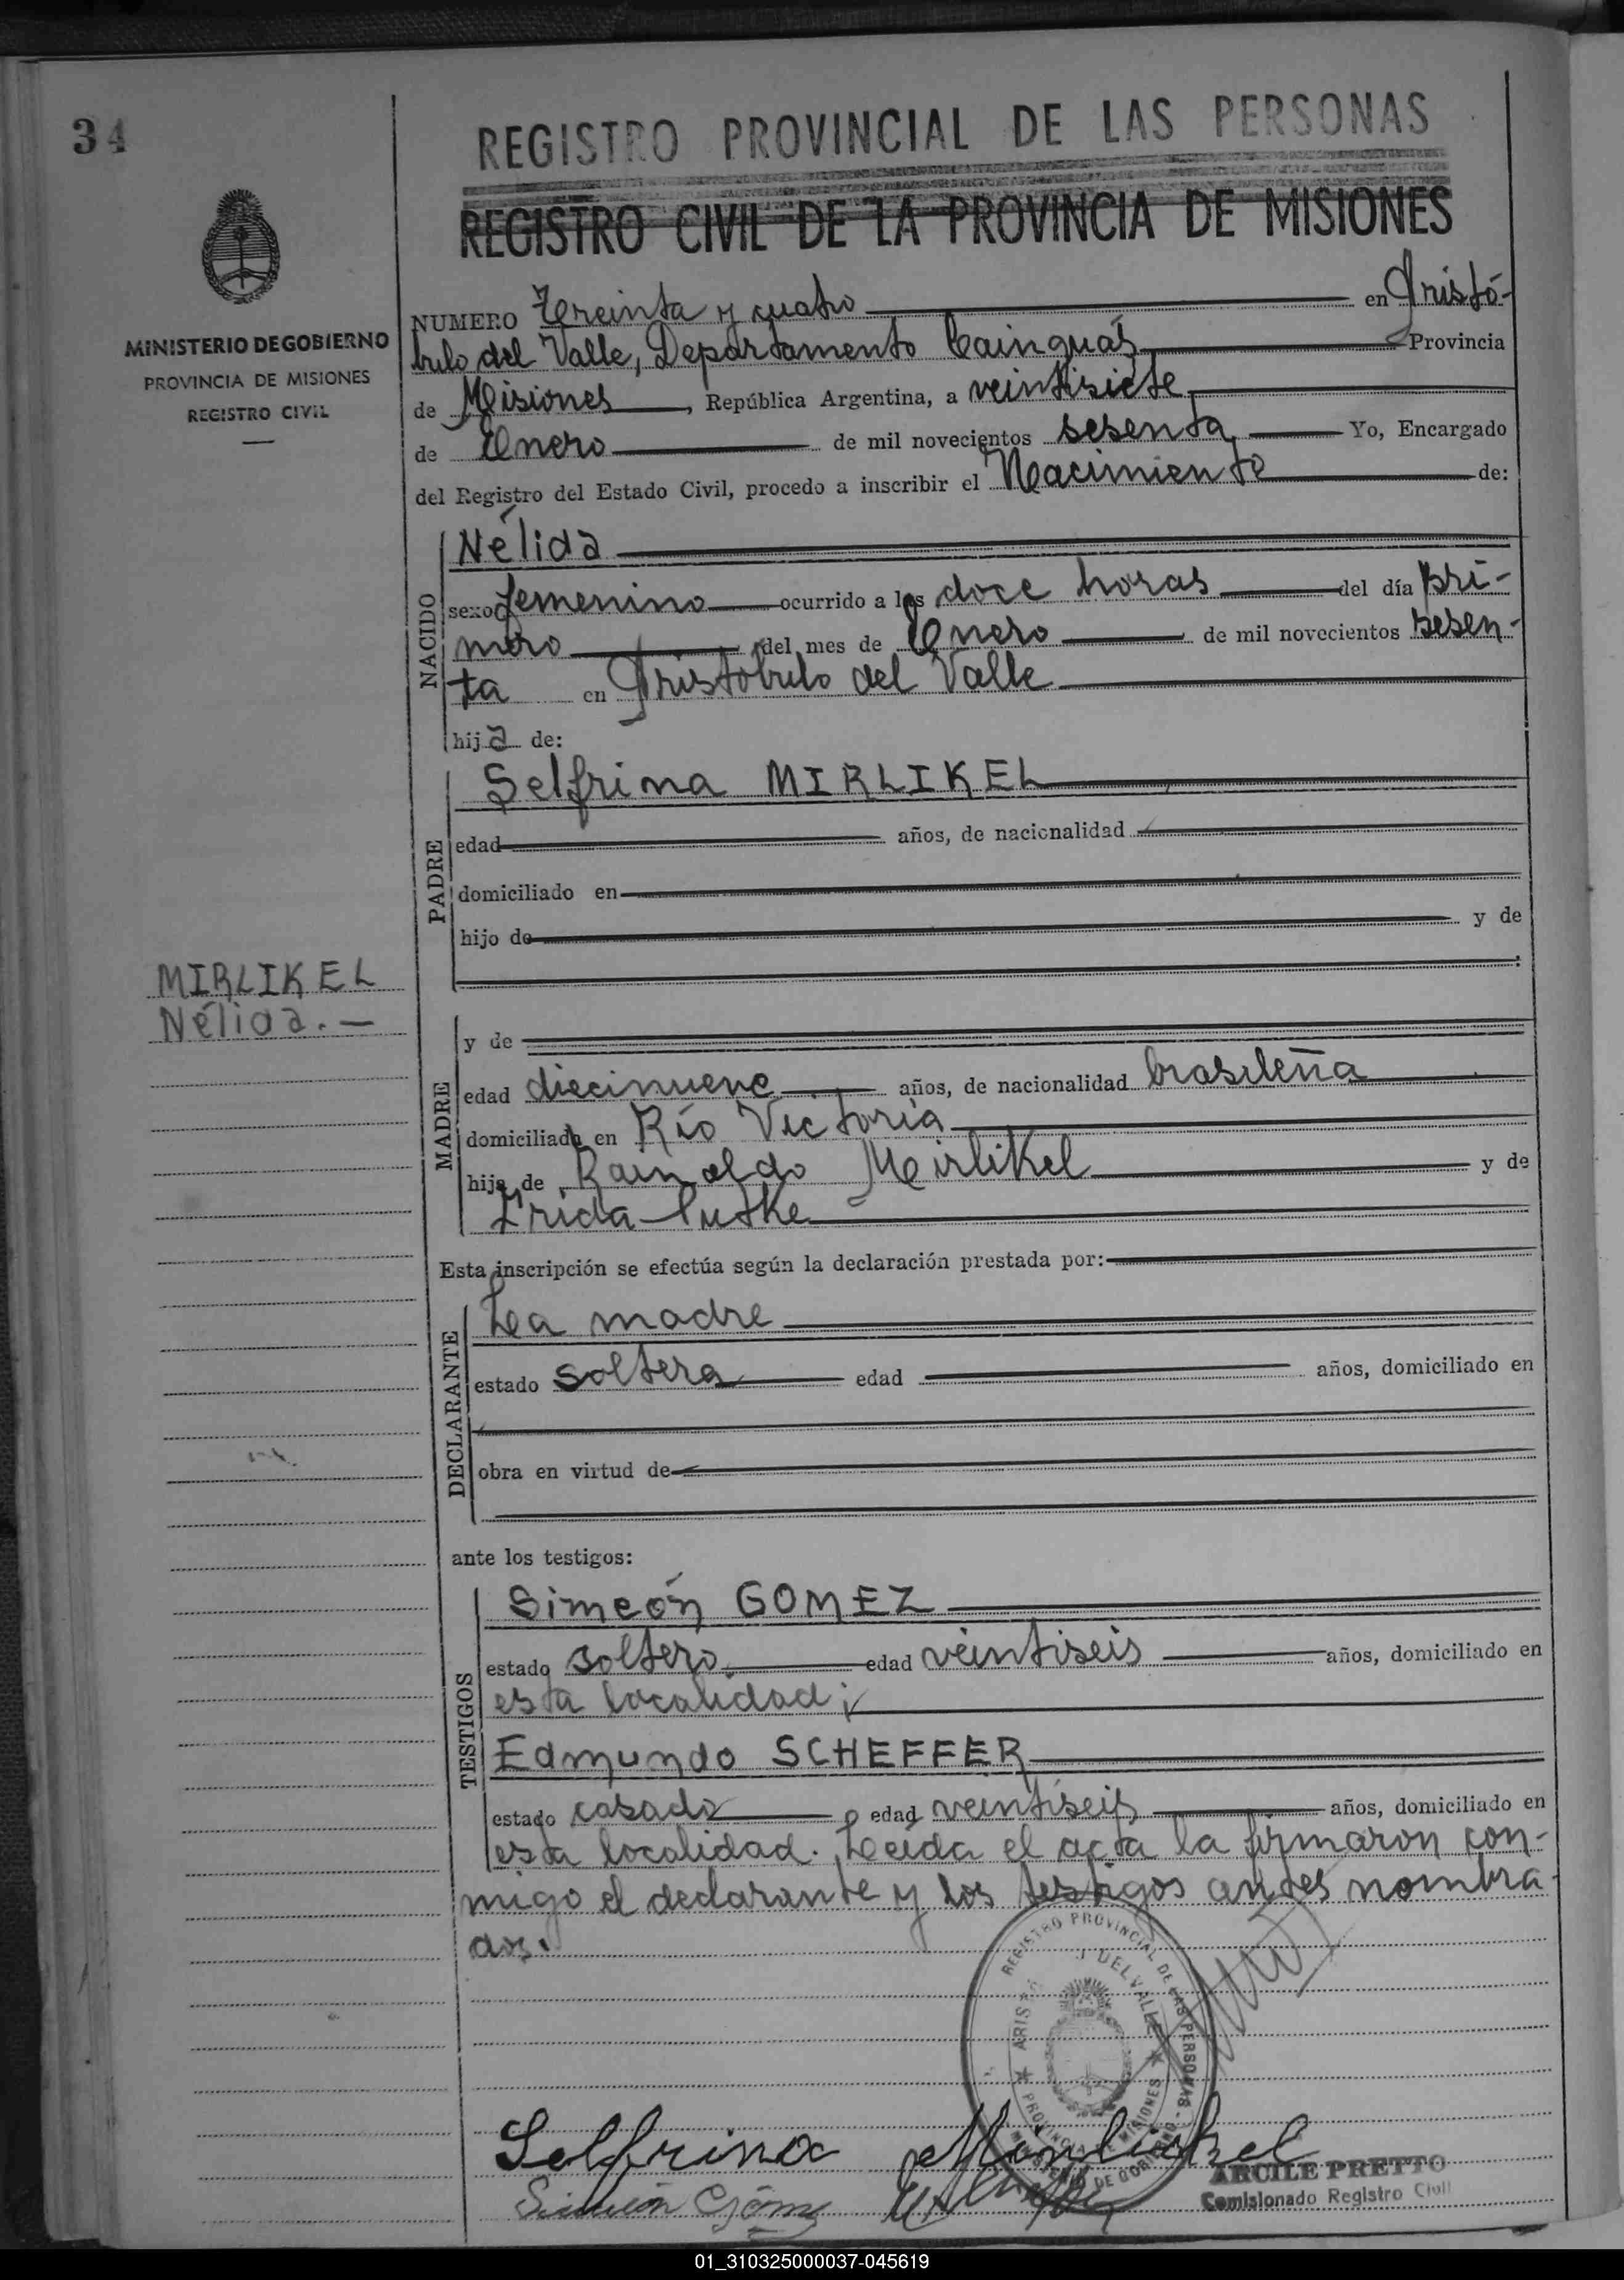 34
REGISTRO PROVINCIAL DE LAS PERSONAS
REGISTRO CIVIL DE LA PROVINCIA DE MISIONES
MINISTERIO DE GOBIERNO
PROVINCIA DE MISIONES
REGISTRO CIVIL
NUMERO Treinta y cuatro en Aristó-
bulo del Valle, Departamento Cainguás Provincia
de Misiones, República Argentina, a veintisiete
de Enero de mil novecientos sesenta, Yo, Encargado
del Registro del Estado Civil, procedo a inscribir el Nacimiento de:
NACIDO
Nélida
sexo femenino ocurrido a las doce horas del día pri-
mero del mes de Enero de mil novecientos sesen-
ta en Aristóbulo del Valle
hija de:
PADRE
Selfrina MIRLIKEL
edad años, de nacionalidad
domiciliado en
hijo de y de
MIRLIKEL
Nélida.-
MADRE
y de
edad diecinueve años, de nacionalidad brasileña
domiciliada en Río Victoria
hija de Rainoldo Mirlikel y de
Frida Lutke
Esta inscripción se efectúa según la declaración prestada por:
DECLARANTE
La madre
estado soltera edad años, domiciliado en
obra en virtud de
ante los testigos:
TESTIGOS
Simeón GOMEZ
estado soltero edad veintiseis años, domiciliado en
esta localidad;
Edmundo SCHEFFER
estado casado edad veintiseis años, domiciliado en
esta localidad. Leída el acta la firmaron con-
migo el declarante y los testigos antes nombra-
dos.
REGISTRO PROVINCIAL DE LAS PERSONAS - MINISTERIO DE GOBIERNO
DEL VALLE
PROVINCIA DE MISIONES
Selfrina Mirlickel
Simeón Gómez
ARCILE PRETTO
Comisionado Registro Civil
01_310325000037-045619